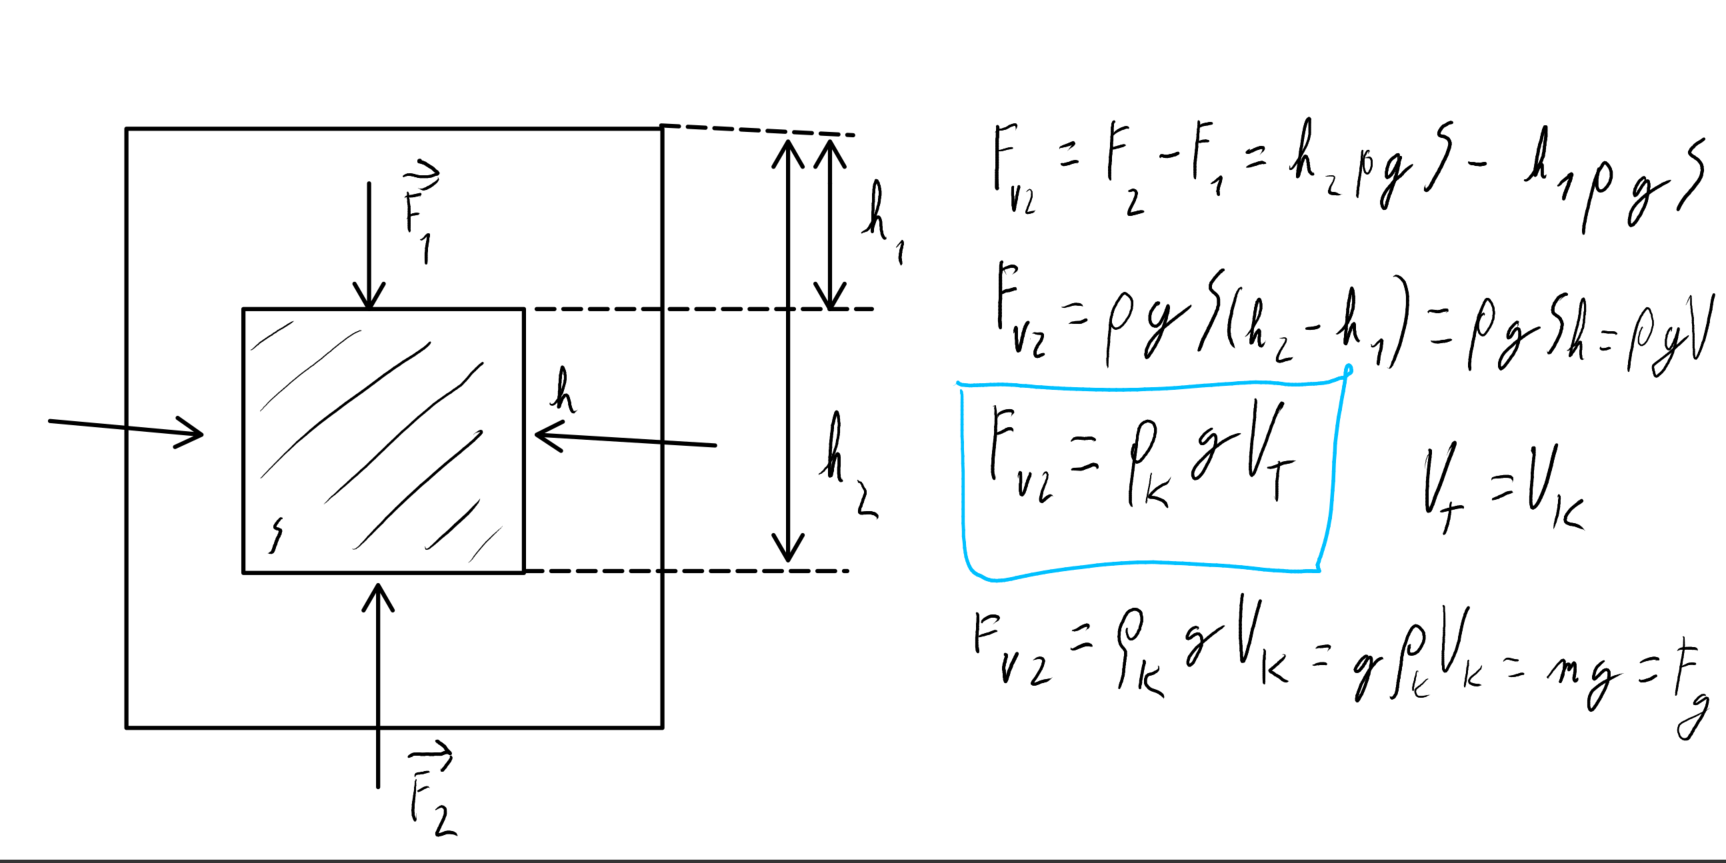 F⃗₁
h₁
h
h₂
S
F⃗₂
F_{v2} = F₂ - F₁ = h₂ρgS - h₁ρgS
F_{v2} = ρgS(h₂ - h₁) = ρgSh = ρgV
F_{v2} = ρ_K g V_T
V_T = V_K
F_{v2} = ρ_K g V_K = gρ_K V_K = mg = F_g